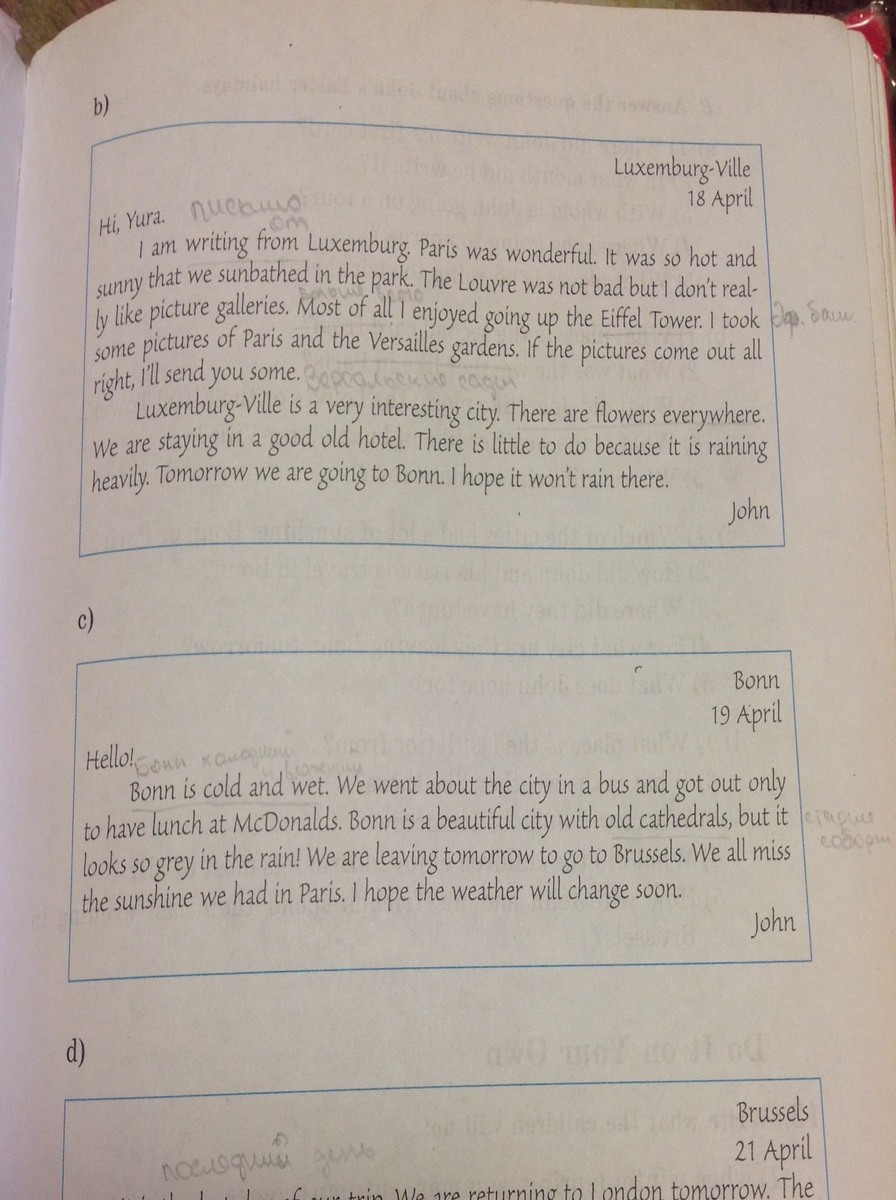 b)
Luxemburg-Ville
18 April
Hi, Yura. письмо
от
I am writing from Luxemburg. Paris was wonderful. It was so hot and
sunny that we sunbathed in the park. The Louvre was not bad but I don't real-
ly like picture galleries. Most of all I enjoyed going up the Eiffel Tower. I took
some pictures of Paris and the Versailles gardens. If the pictures come out all
right, I'll send you some. Версальские сады
Luxemburg-Ville is a very interesting city. There are flowers everywhere.
We are staying in a good old hotel. There is little to do because it is raining
heavily. Tomorrow we are going to Bonn. I hope it won't rain there.
John
c)
Bonn
19 April
Hello! Бонн холодный
Bonn is cold and wet. We went about the city in a bus and got out only
to have lunch at McDonalds. Bonn is a beautiful city with old cathedrals, but it
старые
looks so grey in the rain! We are leaving tomorrow to go to Brussels. We all miss
the sunshine we had in Paris. I hope the weather will change soon.
John
d)
Brussels
21 April
последний день
of our trip. We are returning to London tomorrow. The